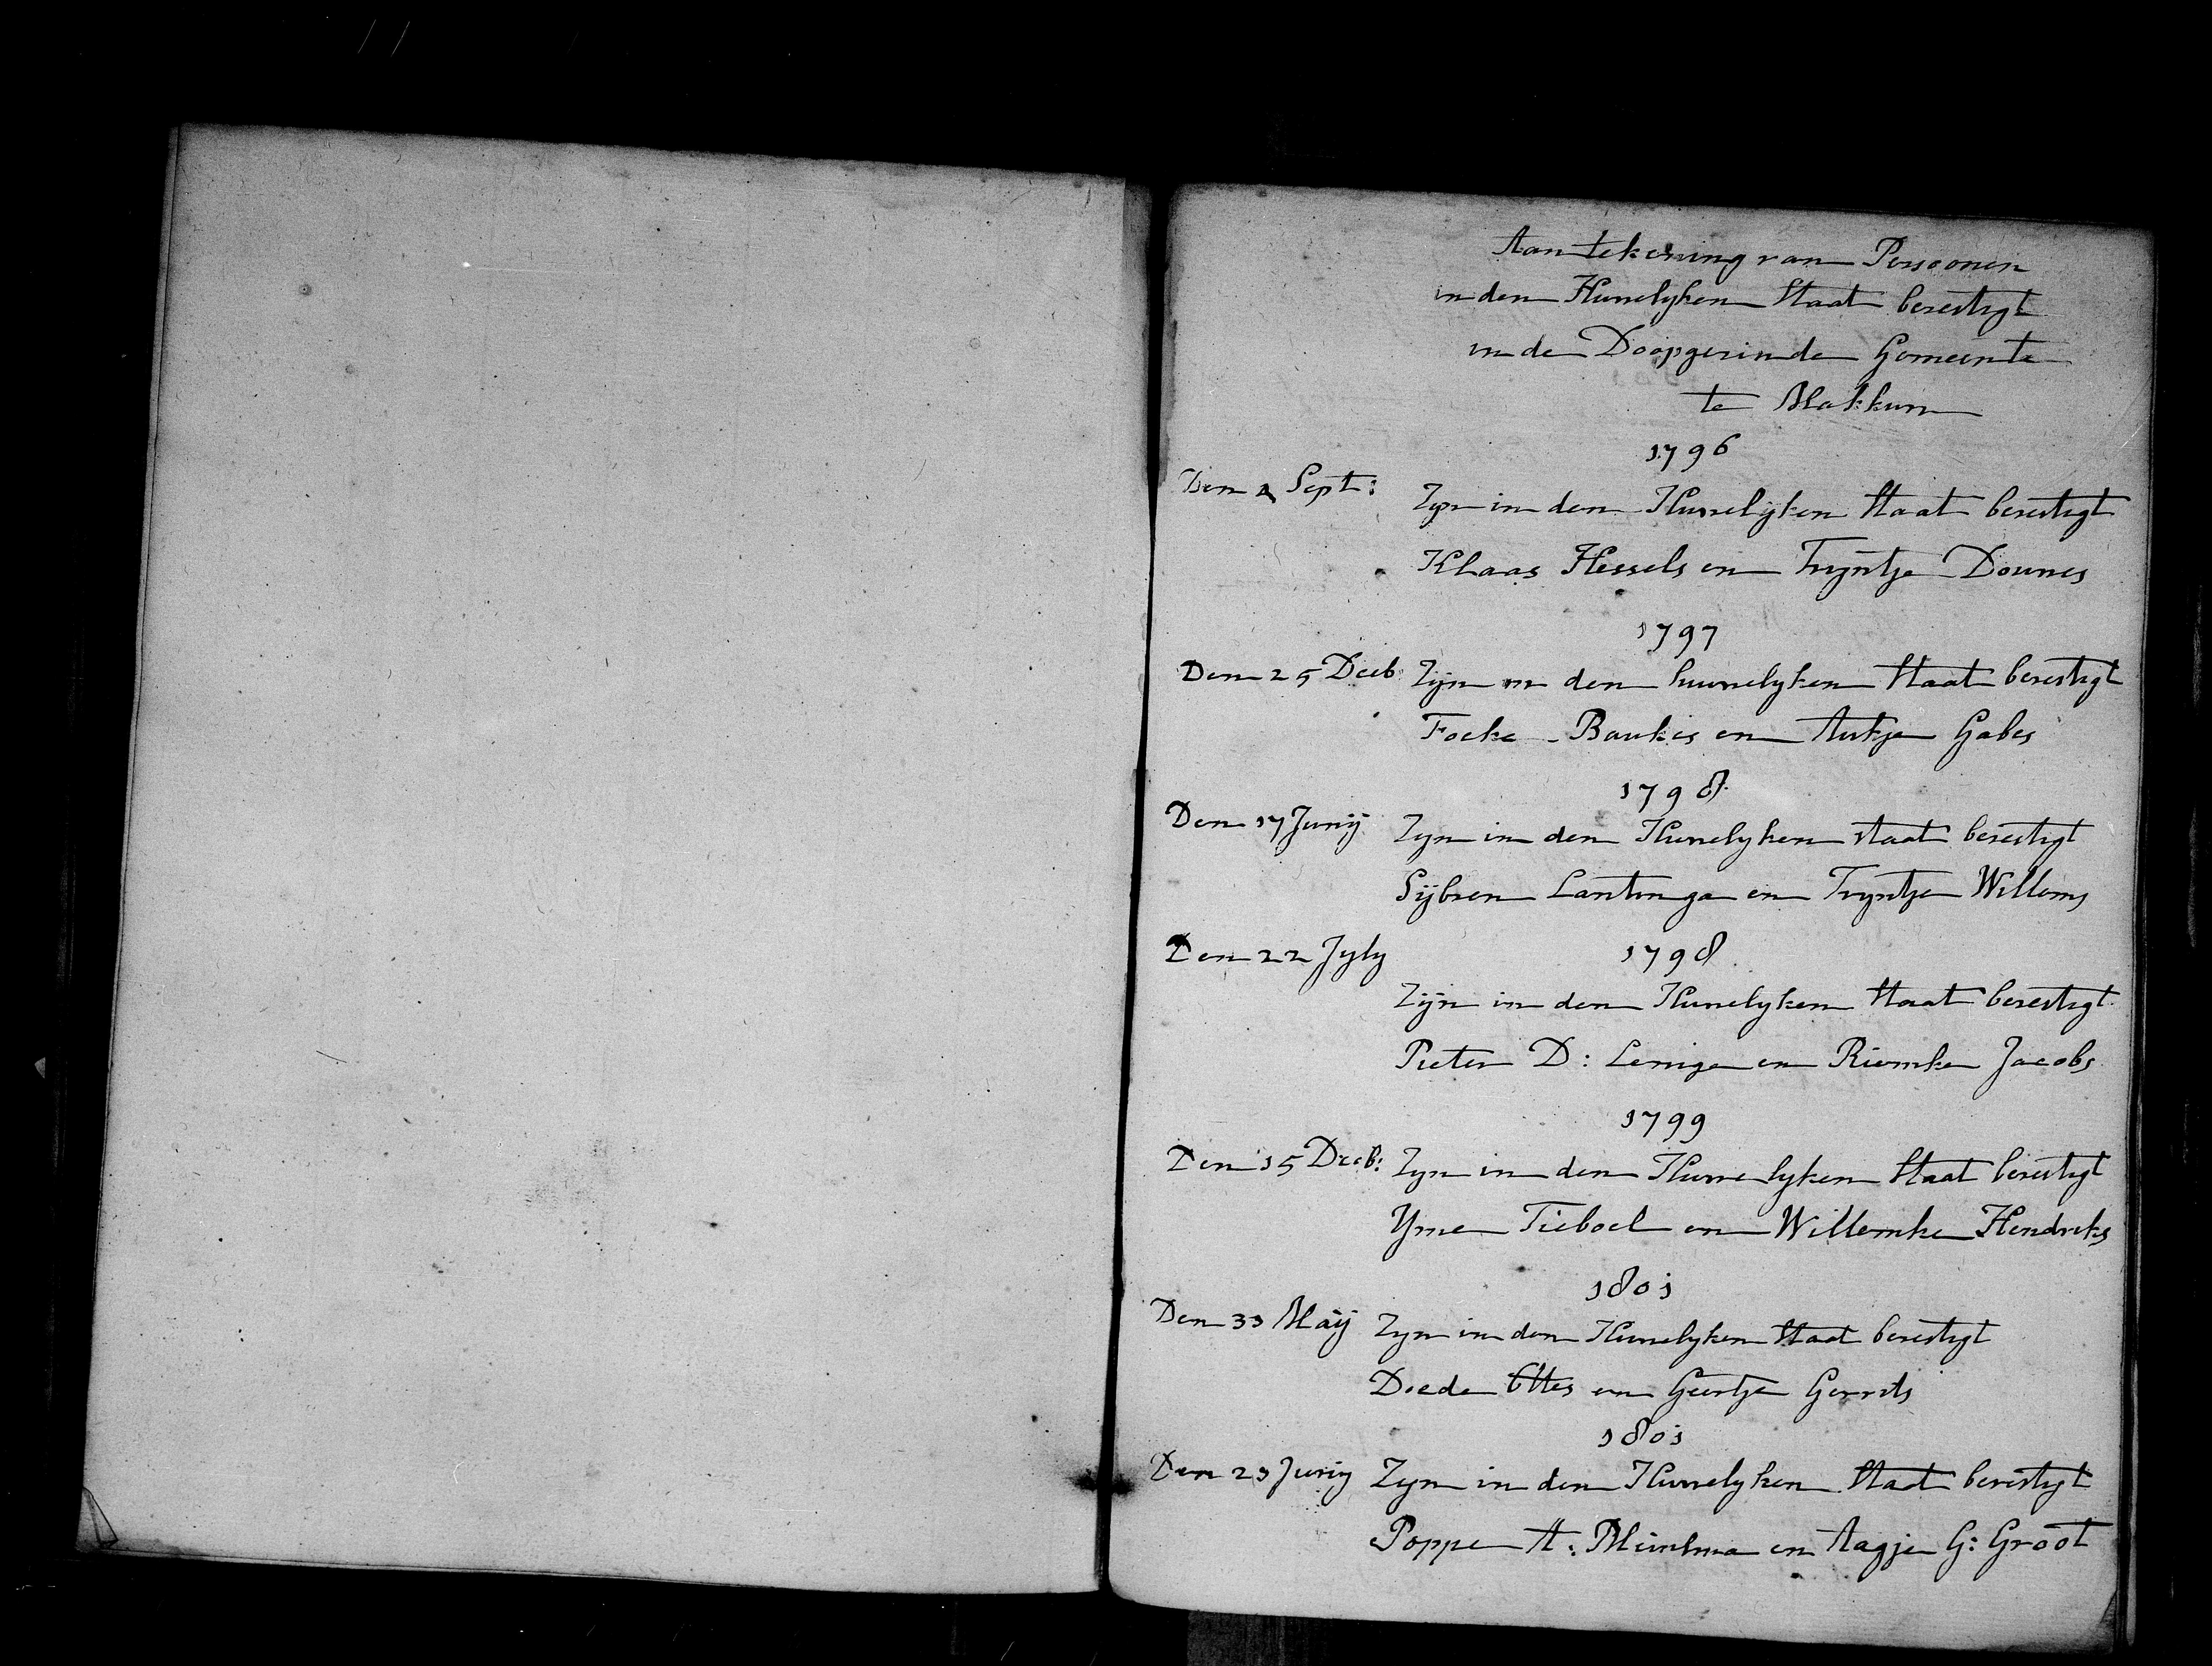 Aantekening van Persoonen
in den Huwelyken Staat bevestigt
in de Doopgezinde Gemeente
te Makkum
1796
Den Sept: Zyn in den Huwelyken Staat bevestigt
Klaas Hessels en Tryntje Douwes
1797
Den 25 Decb Zijn in den huwelyken Staat bevestigt
Focke Baukes en Antje Gabes
1798
Den 17 Junij Zyn in den Huwelyken staat bevestigt
Sijbren Lantinga en Tryntje Willems
Den 22 July 1798
Zijn in den Huwelyken Staat bevestigt
Pieter D: en Riemke Jacobs
1799
Den 15 Decb: Zyn in den Huwelyken Staat bevestigt
Yme Tieboel en Willemke Hendriks
1801
Den 31 Maij Zyn in den Huwelyken Staat bevestigt
Doede Ottes en Geertje Gerrits
1801
Den 21 Junij Zyn in den Huwelyken Staat bevestigt
Poppe A: en Aagje G: Groot